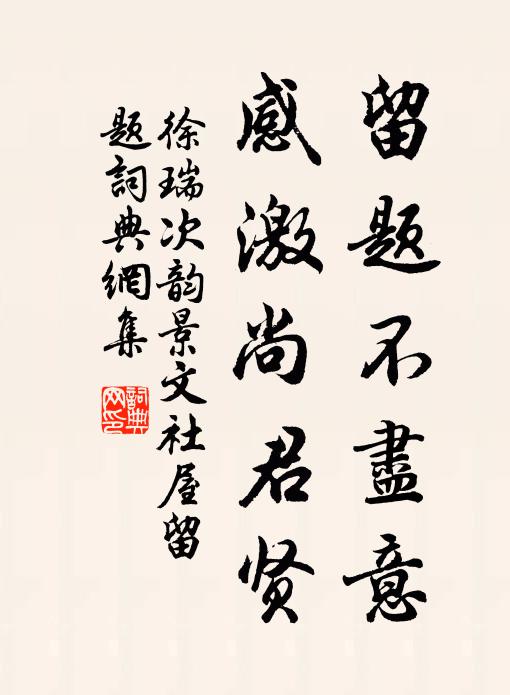 留题不盡意
感激尚君贤
徐瑞次韵景文社屋留
题詞典網集
詞典网印